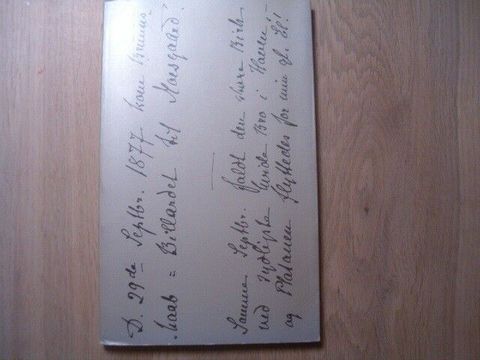 D. 29de Septbr. 1877 kom
= Billardet til Moesgaard!
Samme Septbr. faldt den store Birk
ved sydligste Bro i Haven
og Platanen flyttedes for min